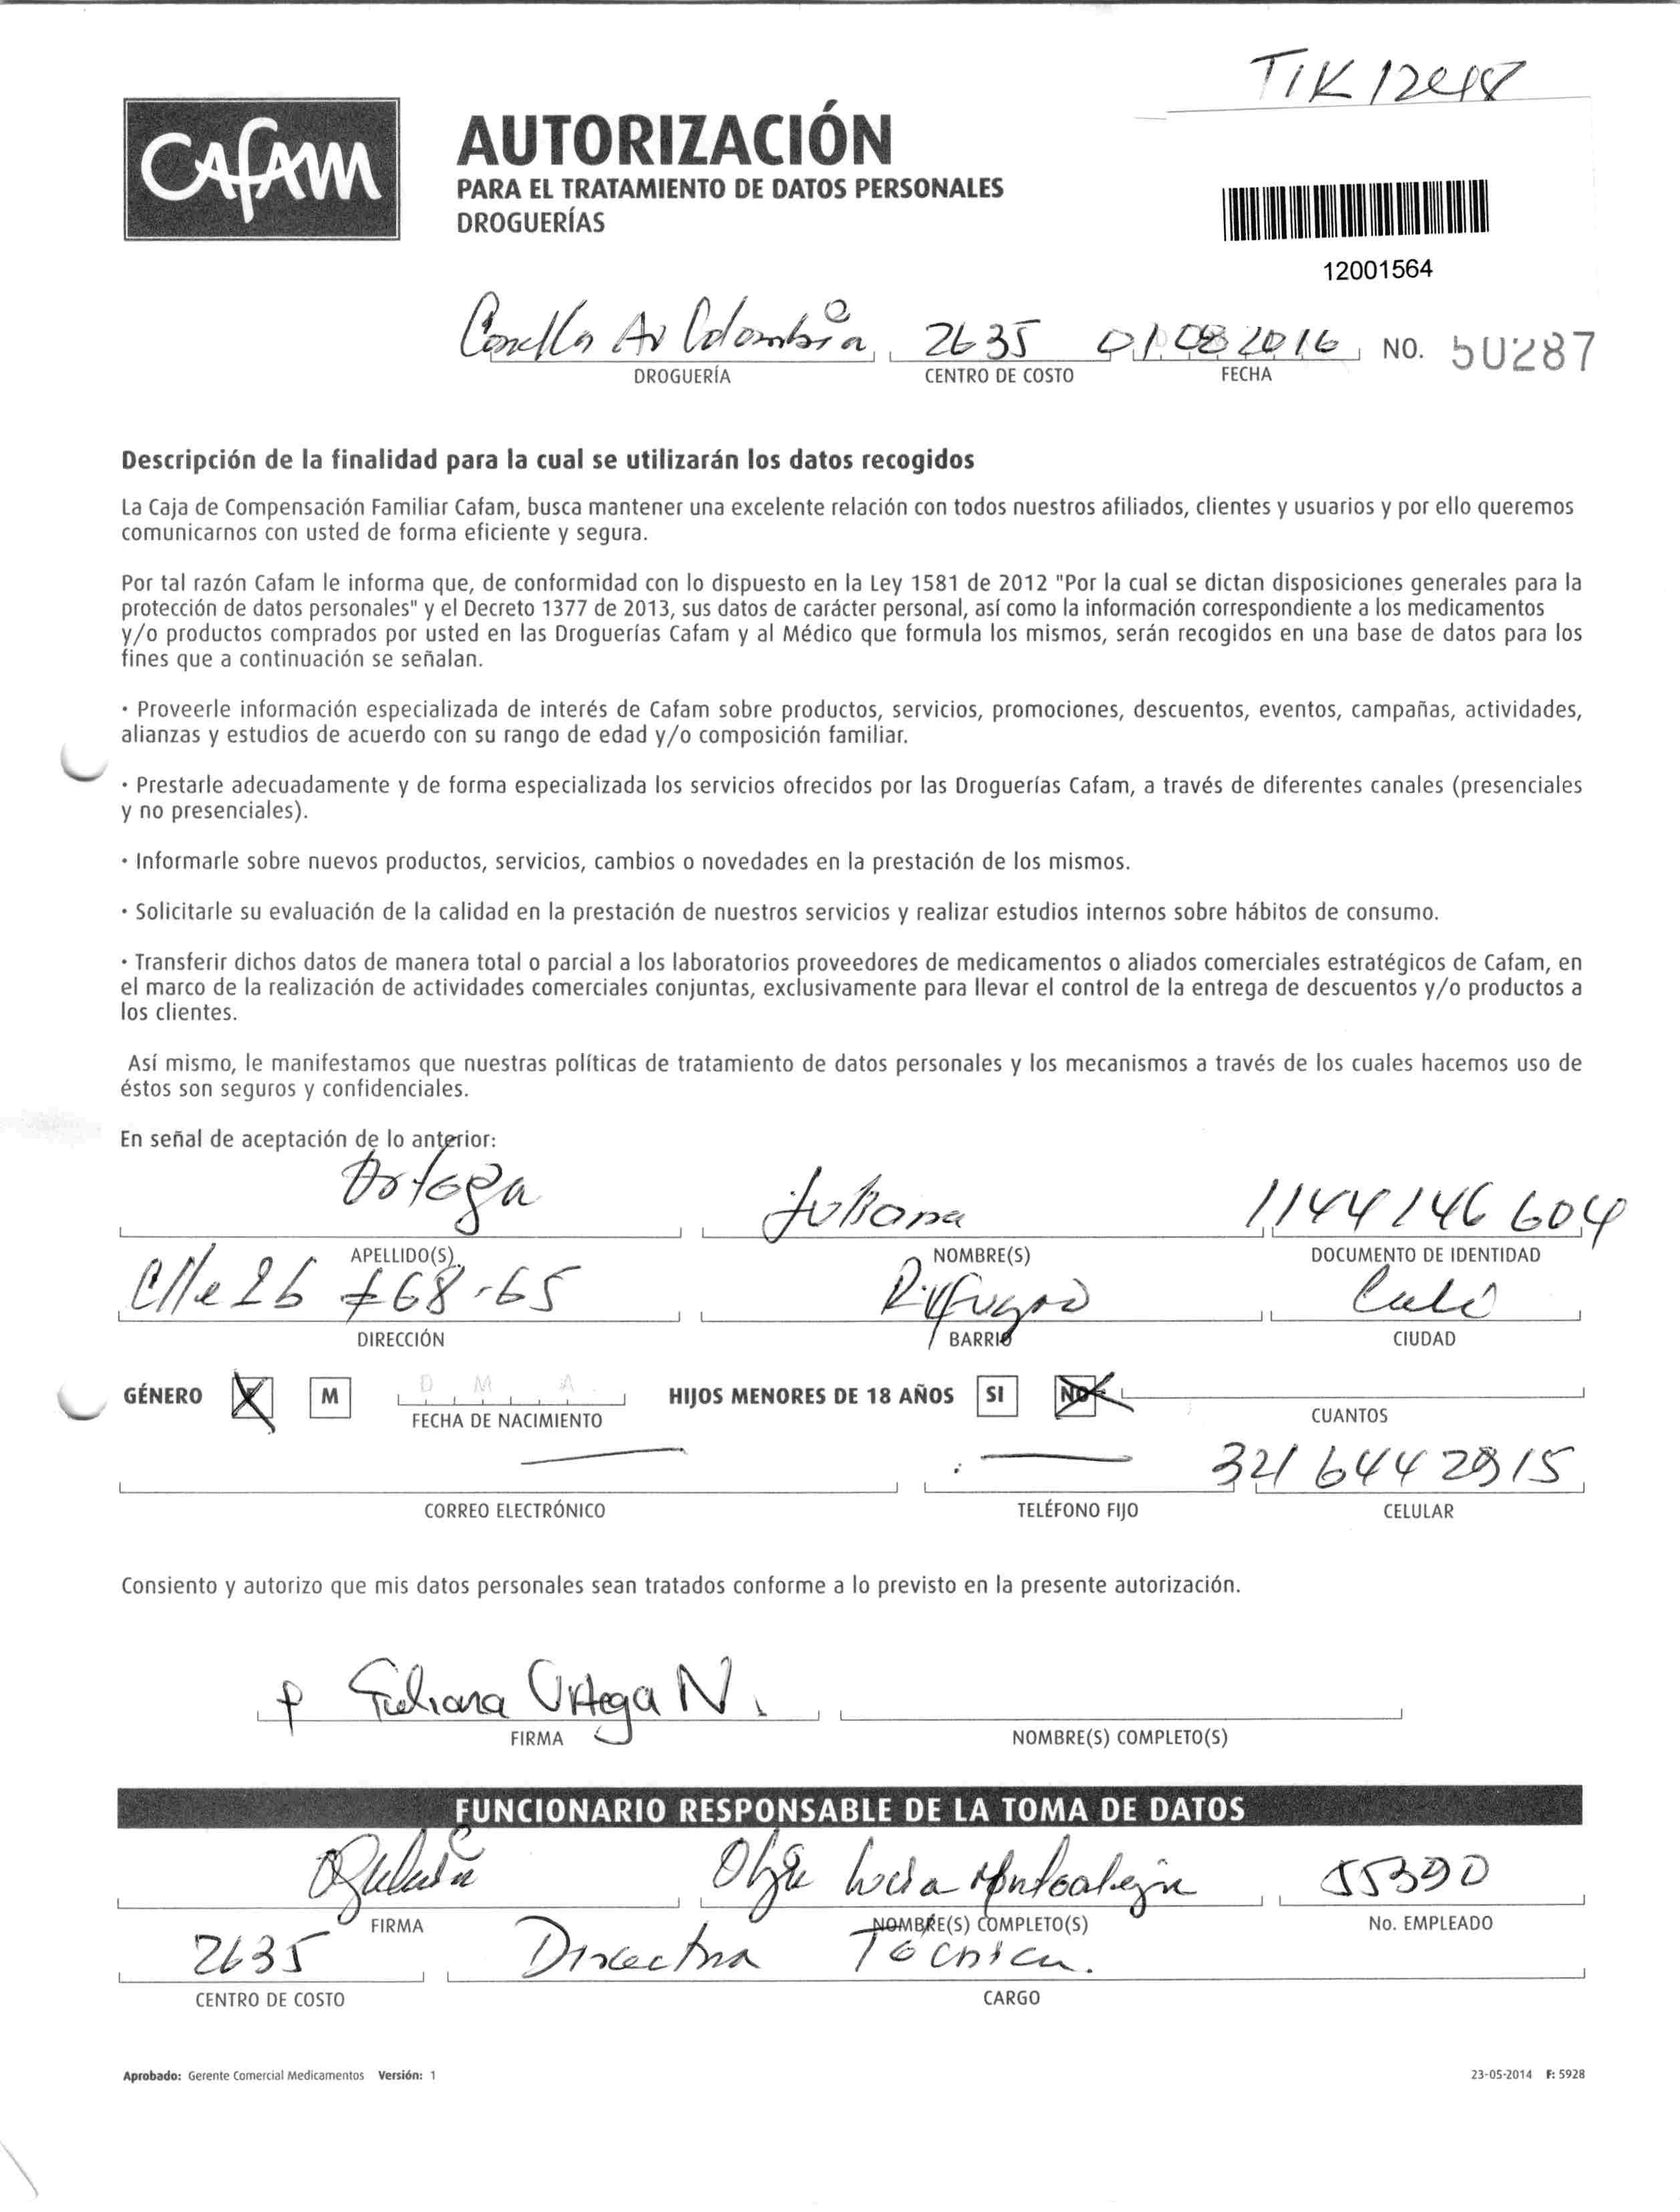 TIK 12
CAFAM
AUTORIZACIÓN
PARA EL TRATAMIENTO DE DATOS PERSONALES
DROGUERÍAS
12001564
Av Colombia 2635 01 08 2016 NO. 50287
DROGUERÍA CENTRO DE COSTO FECHA
Descripción de la finalidad para la cual se utilizarán los datos recogidos
La Caja de Compensación Familiar Cafam, busca mantener una excelente relación con todos nuestros afiliados, clientes y usuarios y por ello queremos
comunicarnos con usted de forma eficiente y segura.
Por tal razón Cafam le informa que, de conformidad con lo dispuesto en la Ley 1581 de 2012 "Por la cual se dictan disposiciones generales para la
protección de datos personales" y el Decreto 1377 de 2013, sus datos de carácter personal, así como la información correspondiente a los medicamentos
y/o productos comprados por usted en las Droguerías Cafam y al Médico que formula los mismos, serán recogidos en una base de datos para los
fines que a continuación se señalan.
• Proveerle información especializada de interés de Cafam sobre productos, servicios, promociones, descuentos, eventos, campañas, actividades,
alianzas y estudios de acuerdo con su rango de edad y/o composición familiar.
• Prestarle adecuadamente y de forma especializada los servicios ofrecidos por las Droguerías Cafam, a través de diferentes canales (presenciales
y no presenciales).
• Informarle sobre nuevos productos, servicios, cambios o novedades en la prestación de los mismos.
• Solicitarle su evaluación de la calidad en la prestación de nuestros servicios y realizar estudios internos sobre hábitos de consumo.
• Transferir dichos datos de manera total o parcial a los laboratorios proveedores de medicamentos o aliados comerciales estratégicos de Cafam, en
el marco de la realización de actividades comerciales conjuntas, exclusivamente para llevar el control de la entrega de descuentos y/o productos a
los clientes.
Así mismo, le manifestamos que nuestras políticas de tratamiento de datos personales y los mecanismos a través de los cuales hacemos uso de
éstos son seguros y confidenciales.
En señal de aceptación de lo anterior:
Ortega Juliana 1144146604
APELLIDO(S) NOMBRE(S) DOCUMENTO DE IDENTIDAD
Clle 26 #68-65 Cali
DIRECCIÓN BARRIO CIUDAD
GÉNERO M D M A HIJOS MENORES DE 18 AÑOS SI NO
FECHA DE NACIMIENTO CUANTOS
321 644 2815
CORREO ELECTRÓNICO TELÉFONO FIJO CELULAR
Consiento y autorizo que mis datos personales sean tratados conforme a lo previsto en la presente autorización.
Juliana Ortega N.
FIRMA NOMBRE(S) COMPLETO(S)
FUNCIONARIO RESPONSABLE DE LA TOMA DE DATOS
Olga Lucia 55390
FIRMA NOMBRE(S) COMPLETO(S) No. EMPLEADO
2635 Directora Tecnica.
CENTRO DE COSTO CARGO
Aprobado: Gerente Comercial Medicamentos Versión: 1 23-05-2014 F: 5928